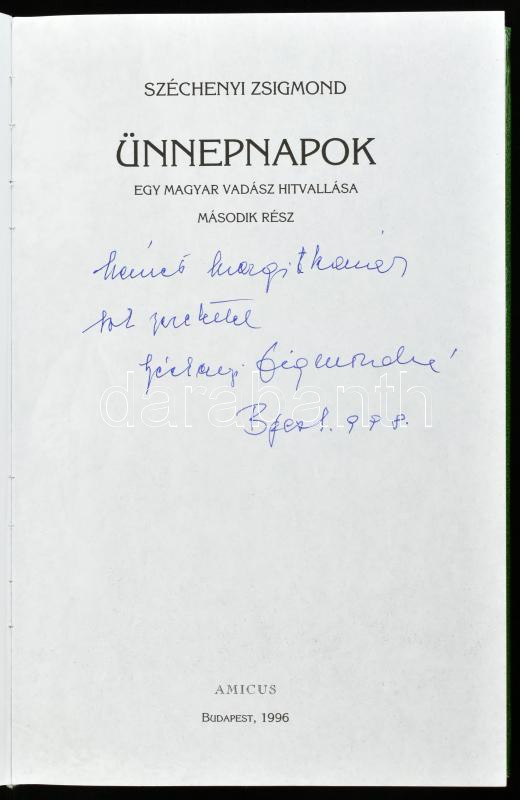 SZÉCHENYI ZSIGMOND
ÜNNEPNAPOK
EGY MAGYAR VADÁSZ HITVALLÁSA
MÁSODIK RÉSZ
Margitkának
sok szeretettel
Széchenyi Zsigmondné
Bpest. 998.
darabanth
AMICUS
BUDAPEST, 1996